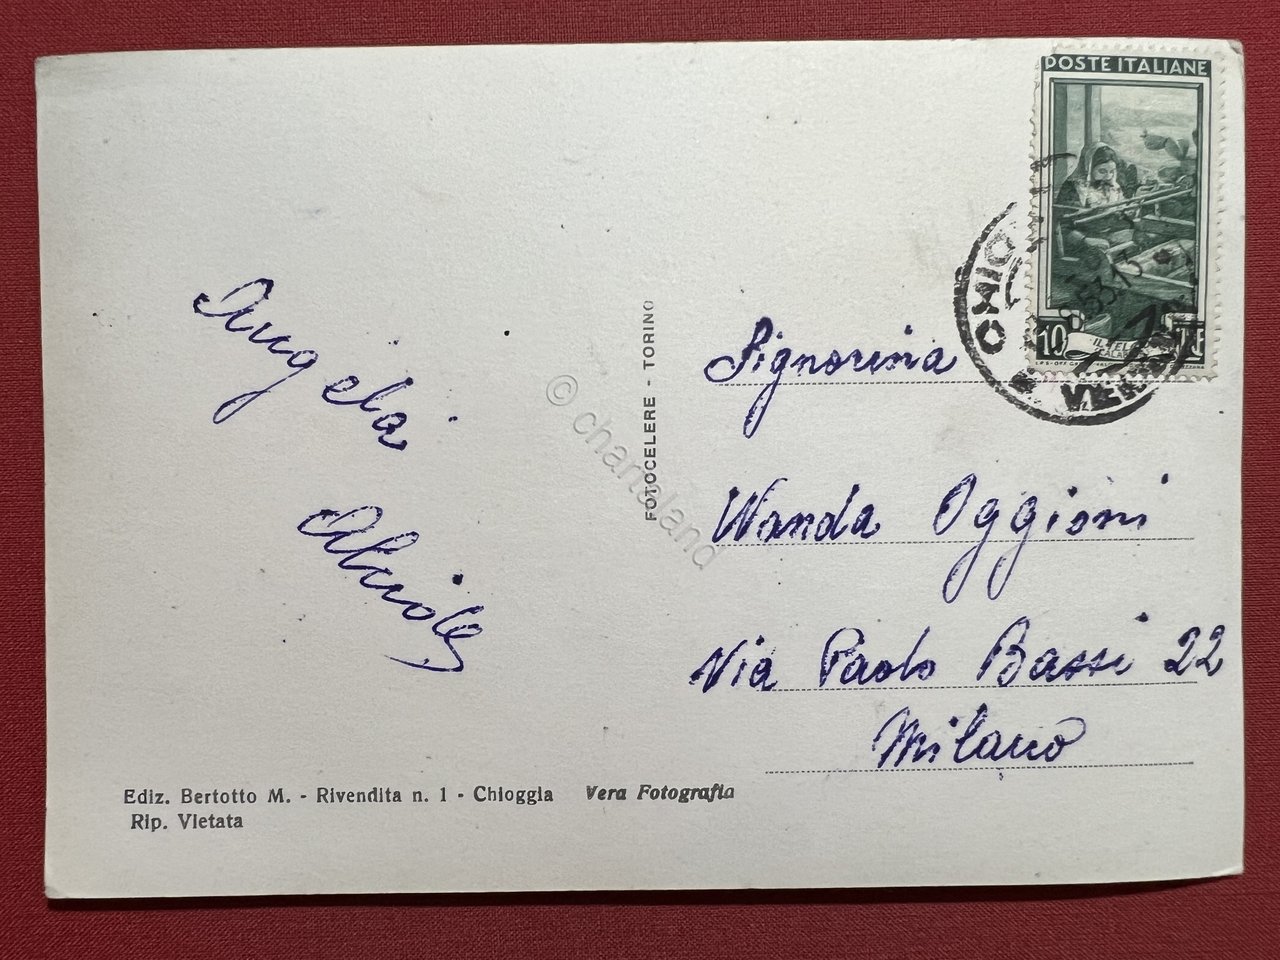 POSTE ITALIANE
10
IL TEL
CHIO
53.13
Angela
FOTOCELERE - TORINO
© chartaland
Signorina
Wanda Oggioni
Via Paolo Bassi 22
Milano
Ediz. Bertotto M. - Rivendita n. 1 - Chioggia Vera Fotografia
Rip. Vietata